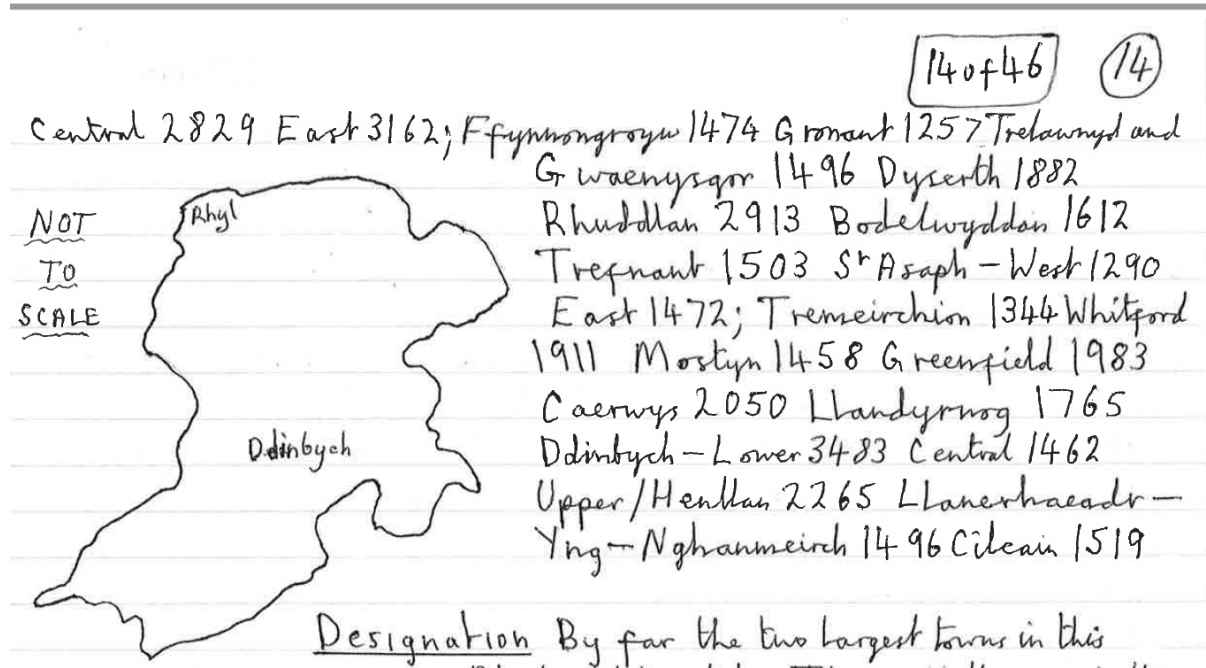 14 of 46 14
Central 2829 East 3162; Ffynnongroyw 1474 Gronant 1257 Trelawnyd and
Gwaenysgor 1496 Dyserth 1882
Rhuddlan 2913 Bodelwyddan 1612
Trefnant 1503 St Asaph - West 1290
East 1472; Tremeirchion 1344 Whitford
1911 Mostyn 1458 Greenfield 1983
Caerwys 2050 Llandyrnog 1765
Ddinbych - Lower 3483 Central 1462
Upper/Henllan 2265 Llanerhaeadr -
Yng - Nghanmeirch 1496 Cilcain 1519
NOT
TO
SCALE
Rhyl
Ddinbych
Designation By far the two largest towns in this